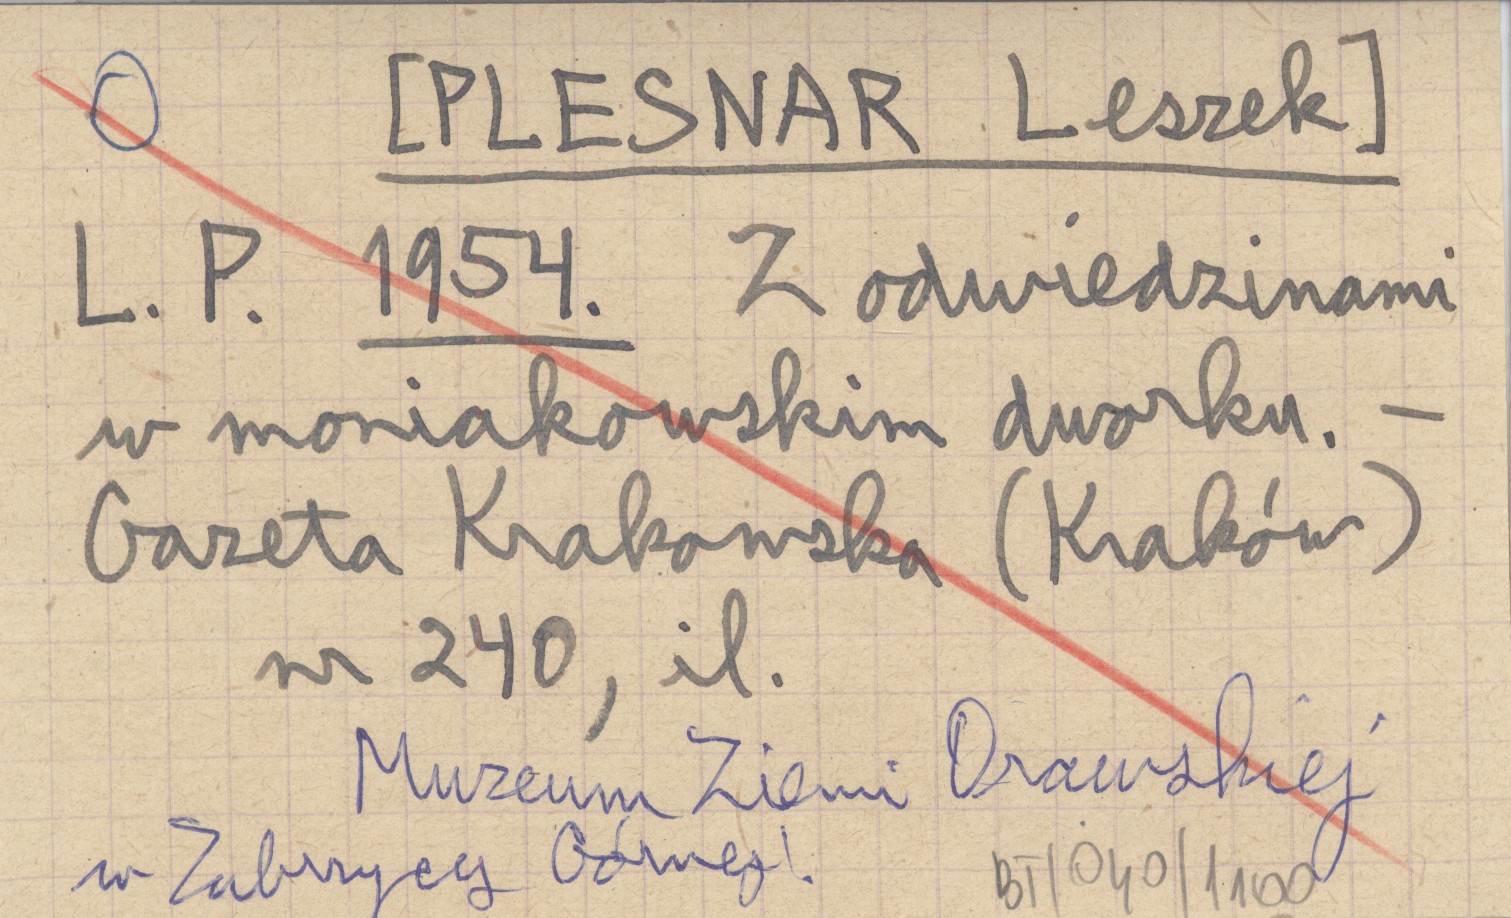 O [PLESNAR Leszek]
L. P. 1954. Z odwiedzinami
w moniakowskim dworku. –
Gazeta Krakowska (Kraków)
nr 240, il.
Muzeum Ziemi Orawskiej
w Zubrzycy Górnej!
BT/040/1100